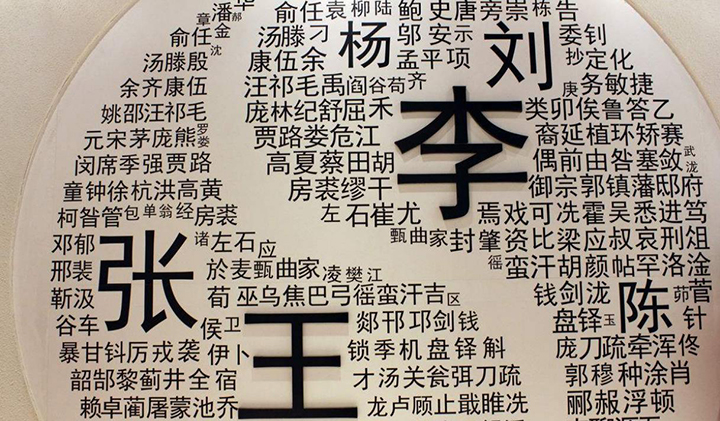 潘 华 郝 俞任袁柳陆 鲍 史唐旁崇 栋 告
章 金
俞任 沈 汤滕刁 杨 邬安示 刘 委钊
汤滕殷 康伍余 孟平项 抄定化
余齐康伍 汪祁毛禹阎谷苟齐 庚务敏捷
姚邵汪祁毛 庞林纪舒屈禾 李 类卯俟鲁答乙
元宋茅庞熊 罗娄 贾路娄危江 裔延植环矫赛
闵席季强贾路 高夏蔡田胡 偶前由昝塞敛 武泷
童钟徐杭洪高黄 房裘缪干 御宗郭镇潘邸府
柯昝管包单翁经房裘 左石崔尤 焉戏可冼霍吴悉进笃
邓郁 张 诸左石应 甄曲家封肇资比梁应叔哀刑俎
邢裴 於麦甄曲家凌樊江 徭蛮汗胡颜帖罕洛淦
靳汲 荀巫乌焦巴弓徭蛮汗吉区 钱剑泷 陈 茆菅
谷车 侯卫 王 郯邗邛剑钱 盘铎玉 针
暴甘钭厉戎袭伊卜 锁季机盘铎斛 庞刀疏牵浑佟
韶郜黎蓟井全宿 才汤关瓮弭刀疏 郭穆种涂肖
赖卓蔺屠蒙池乔 龙卢顾止戢睢冼 郦郝浮顿